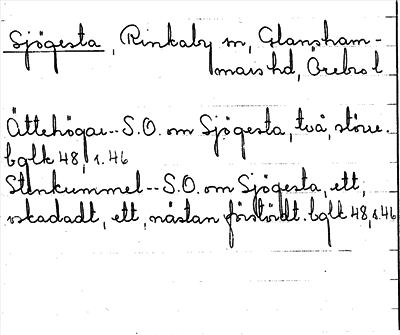 Sjögesta, Rinkaby sn, Glansham-
mars hd, Örebro l
Ättehögar--S.O. om Sjögesta, två, större.
bglk 48, s. 46
Stenkummel--S.O. om Sjögesta, ett,
oskadadt, ett, nästan förstördt. bglk 48, s. 46